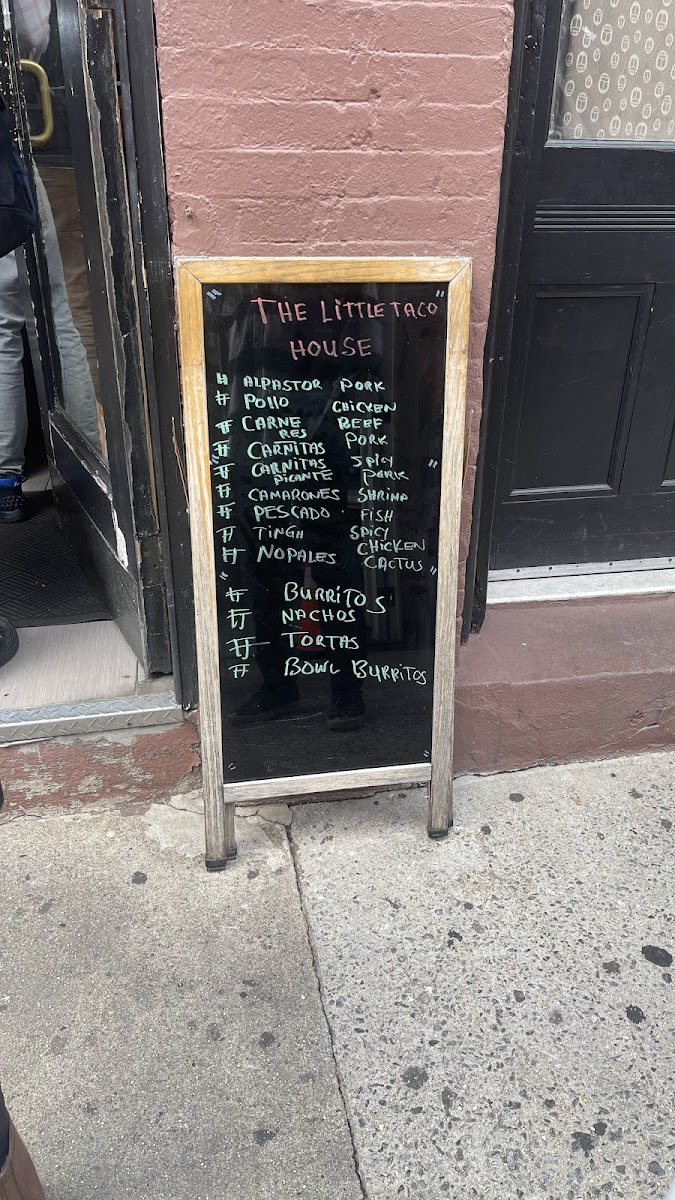 " THE LiTTLE TACO "
HOUSE
# ALPASTOR PORK
# POllO CHICKEN
# CARNE RES BEEF
# CARNITAS PORK
# CARNITAS PICANTE SPICY PORK
# CAMARONES SHRIMP
# PESCADO · FISH
# TINGA SPICY CHICKEN
# NOPALES CACTUS
# BURRiTOS
# NACHOS
# TORTAS
# BOWL BURRITOS